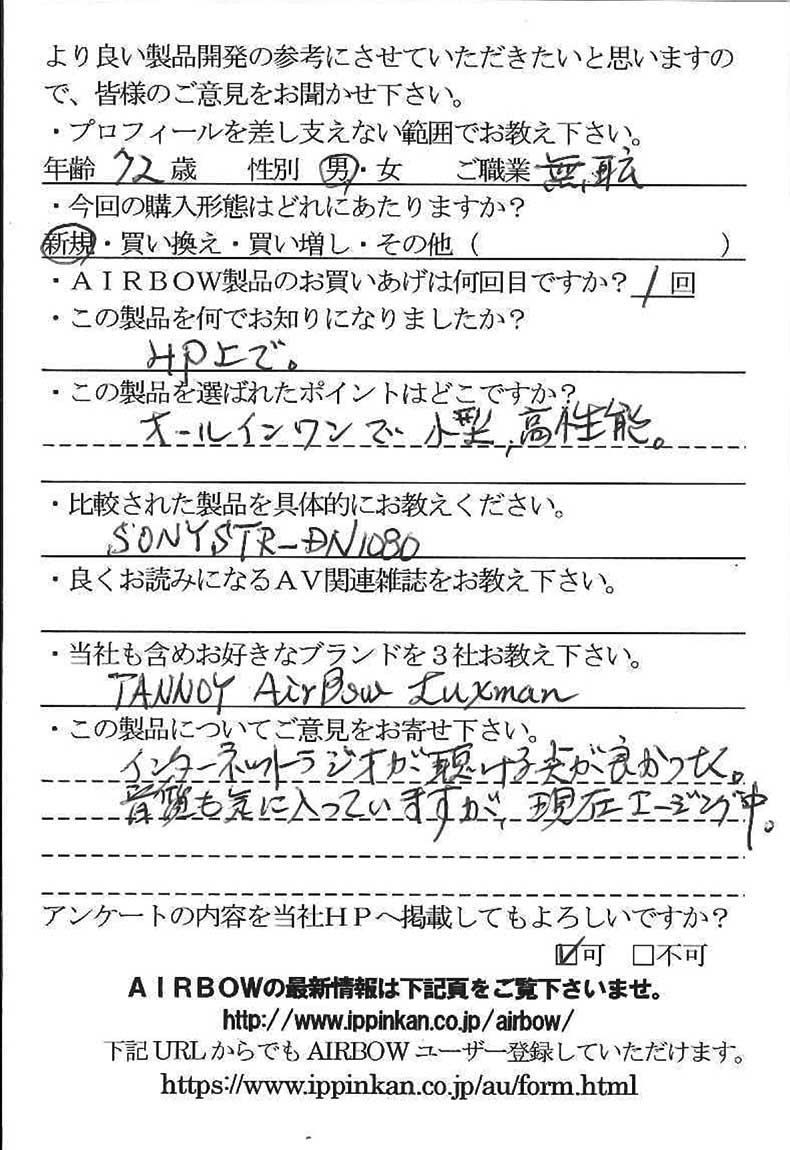 より良い製品開発の参考にさせていただきたいと思いますの
で、皆様のご意見をお聞かせ下さい。
・プロフィールを差し支えない範囲でお教え下さい。
年齢 72 歳 性別 男・女 ご職業 無職
・今回の購入形態はどれにあたりますか？
新規・買い換え・買い増し・その他（ ）
・ＡＩＲＢＯＷ製品のお買いあげは何回目ですか？ 1 回
・この製品を何でお知りになりましたか？
HP上で。
・この製品を選ばれたポイントはどこですか？
オールインワンで 小型,高性能。
・比較された製品を具体的にお教えください。
SONY STR-DN1080
・良くお読みになるＡＶ関連雑誌をお教え下さい。
・当社も含めお好きなブランドを３社お教え下さい。
TANNOY AirBow Luxman
・この製品についてご意見をお寄せ下さい。
インターネットラジオが聴ける点が良かった。
音質も気に入っていますが、現在エージング中。
アンケートの内容を当社ＨＰへ掲載してもよろしいですか？
☑可 □不可
ＡＩＲＢＯＷの最新情報は下記頁をご覧下さいませ。
http://www.ippinkan.co.jp/airbow/
下記 URL からでも AIRBOW ユーザー登録していただけます。
https://www.ippinkan.co.jp/au/form.html